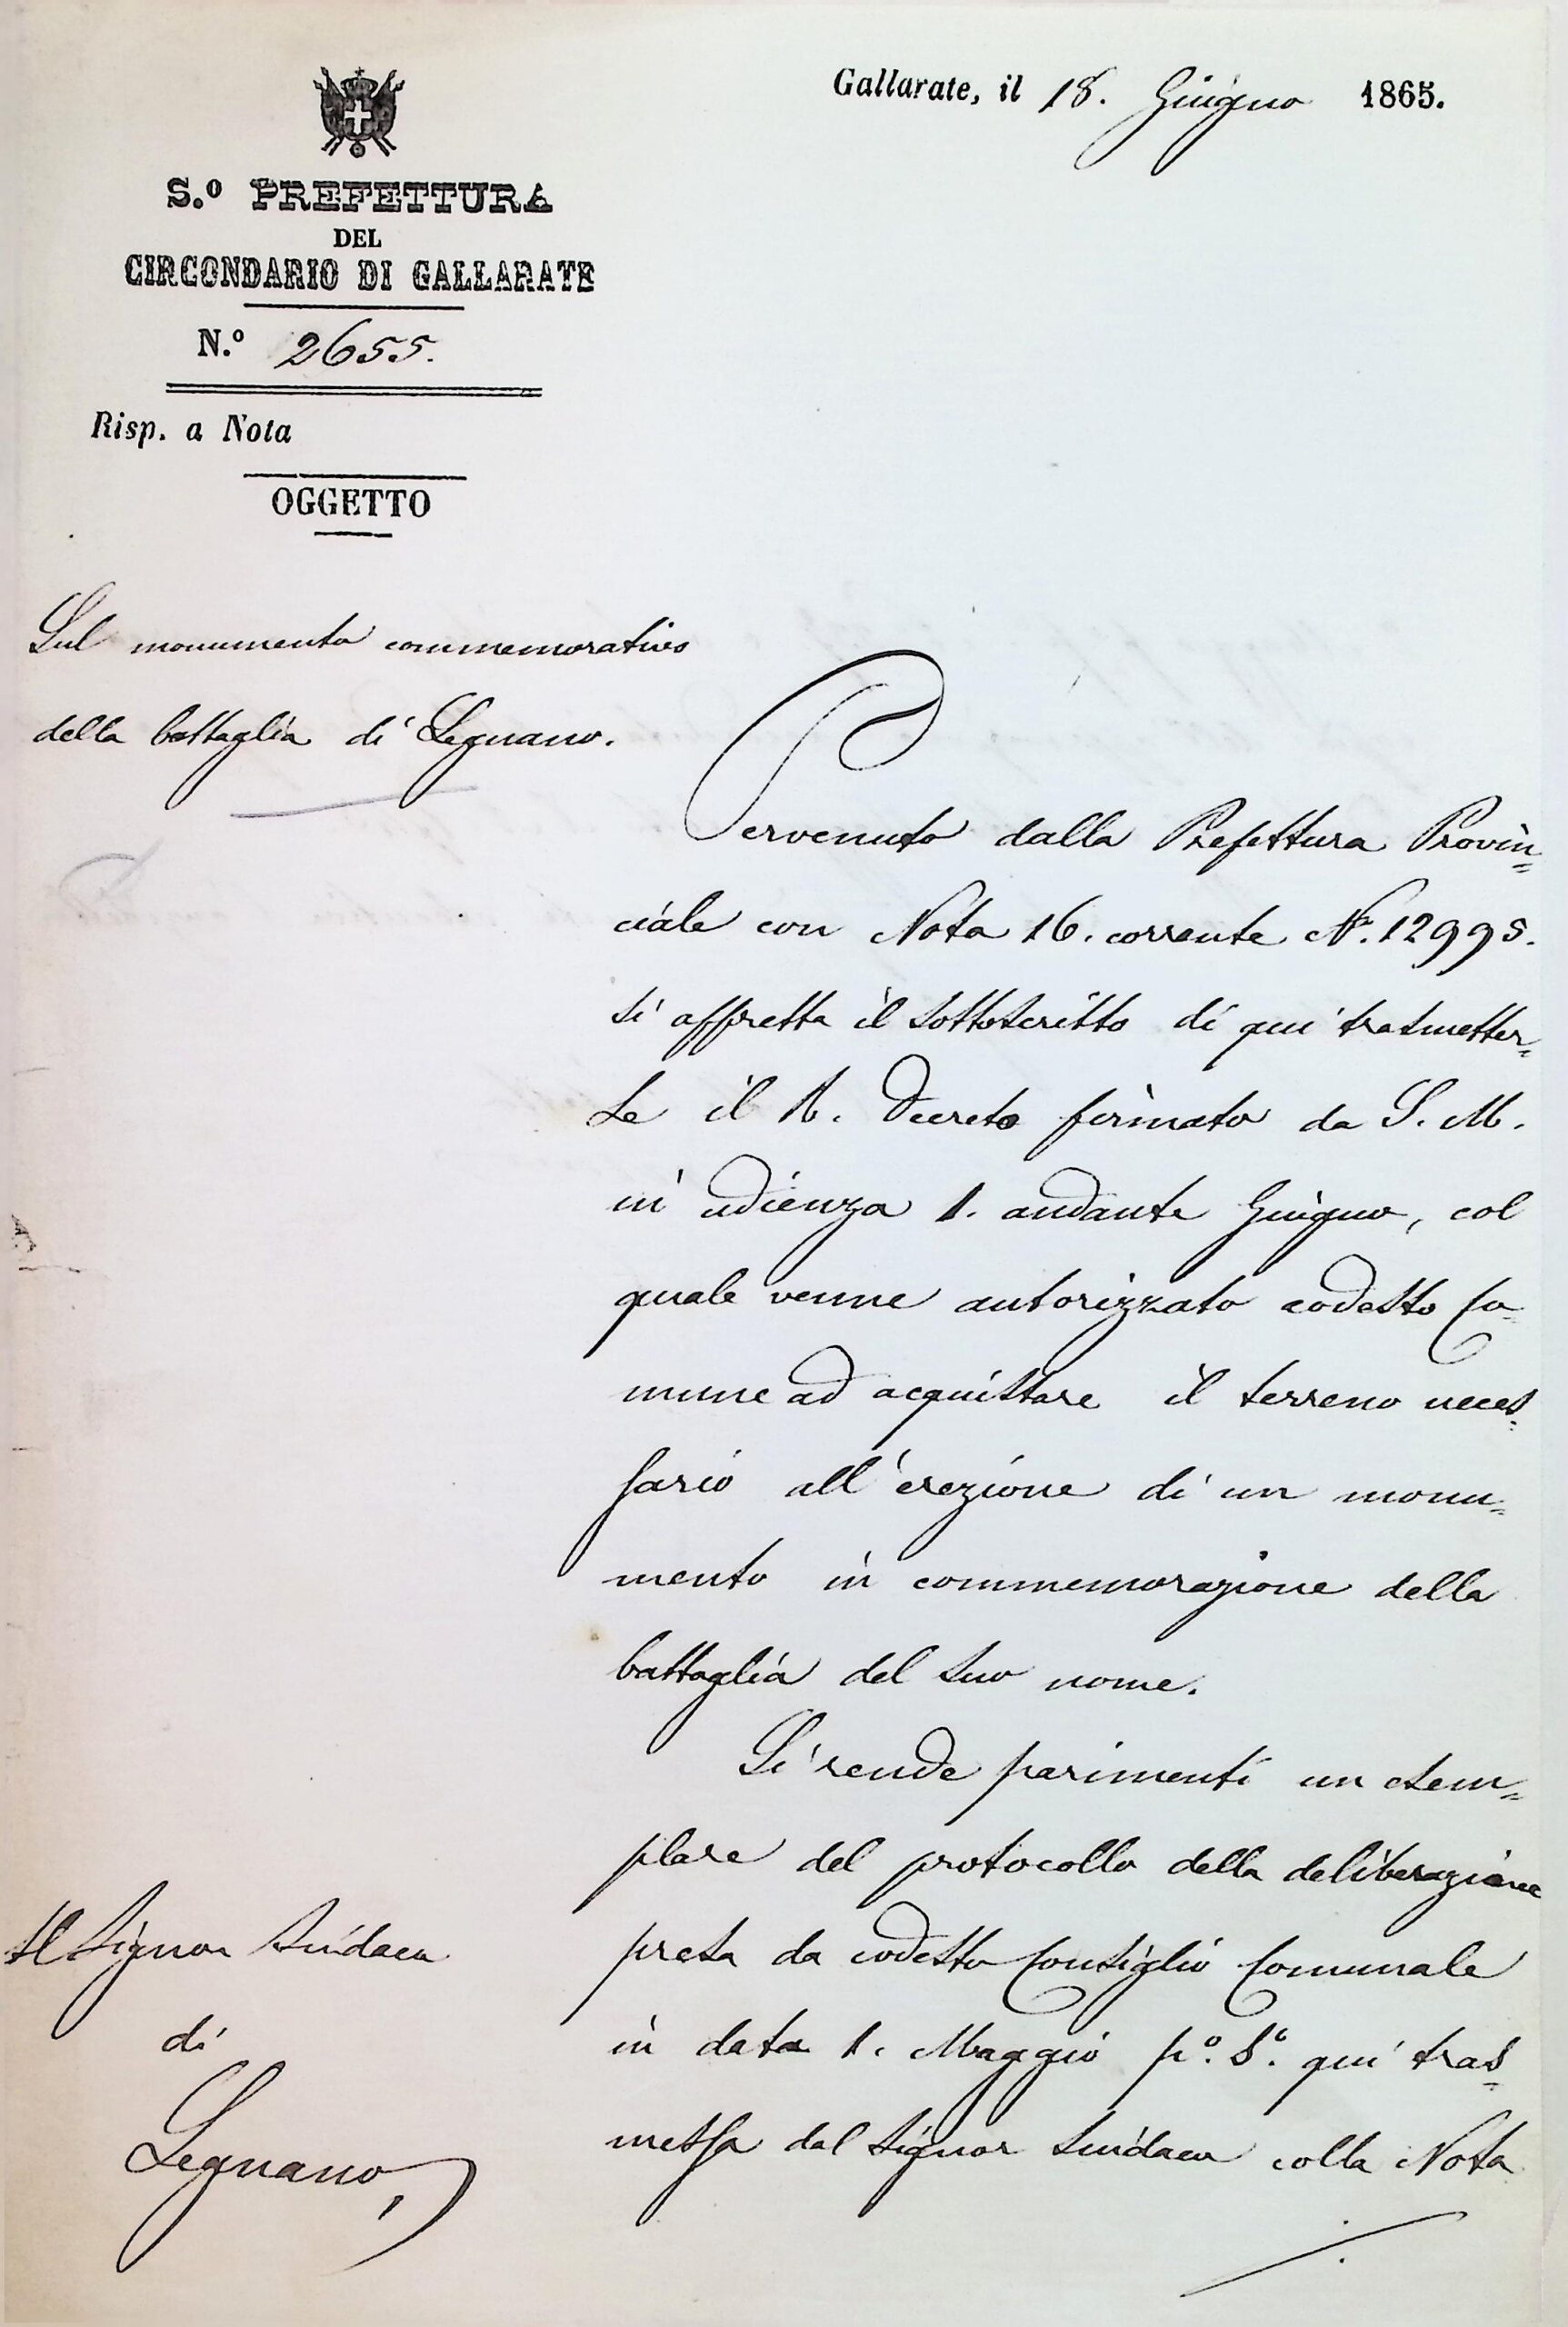 Gallarate, il 18. Giugno 1865.
S.º PREFETTURA
DEL
CIRCONDARIO DI GALLARATE
N.º 2655.
Risp. a Nota
OGGETTO
Sul monumento commemorativo
della battaglia di Legnano.
Pervenuto dalla Prefettura Provin=
ciale con Nota 16. corrente Nº. 12995.
si affretta il sottoscritto di qui trasmetter=
Le il R. Decreto firmato da S. M.
in udienza 1. andante Giugno, col
quale venne autorizzato codesto Co=
mune ad acquistare il terreno neces=
sario all'erezione di un monu=
mento in commemorazione della
battaglia del suo nome.
Si rende parimenti un esem=
plare del protocollo della deliberazione
presa da codesto Consiglio Comunale
in data 1. Maggio pº. sº. qui tras=
messa dal Signor Sindaco colla Nota
Al Signor Sindaco
di
Legnano,